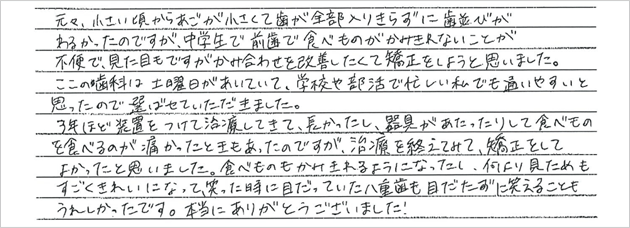 元々、小さい頃からあごが小さくて歯が全部入りきらずに歯並びが
わるかったのですが、中学生で前歯で食べものがかみきれないことが
不便で、見た目もですがかみ合わせを改善したくて矯正をしようと思いました。
ここの歯科は土曜日があいていて、学校や部活で忙しい私でも通いやすいと
思ったので選ばせていただきました。
3年ほど装置をつけて治療してきて、長かったし、器具があたったりして食べもの
を食べるのが痛かったときもあったのですが、治療を終えてみて、矯正をして
よかったと思いました。食べものもかみきれるようになったし、何より見ためも
すごくきれいになって笑った時に目だっていた八重歯も目だたずに笑えることも
うれしかったです。本当にありがとうございました!